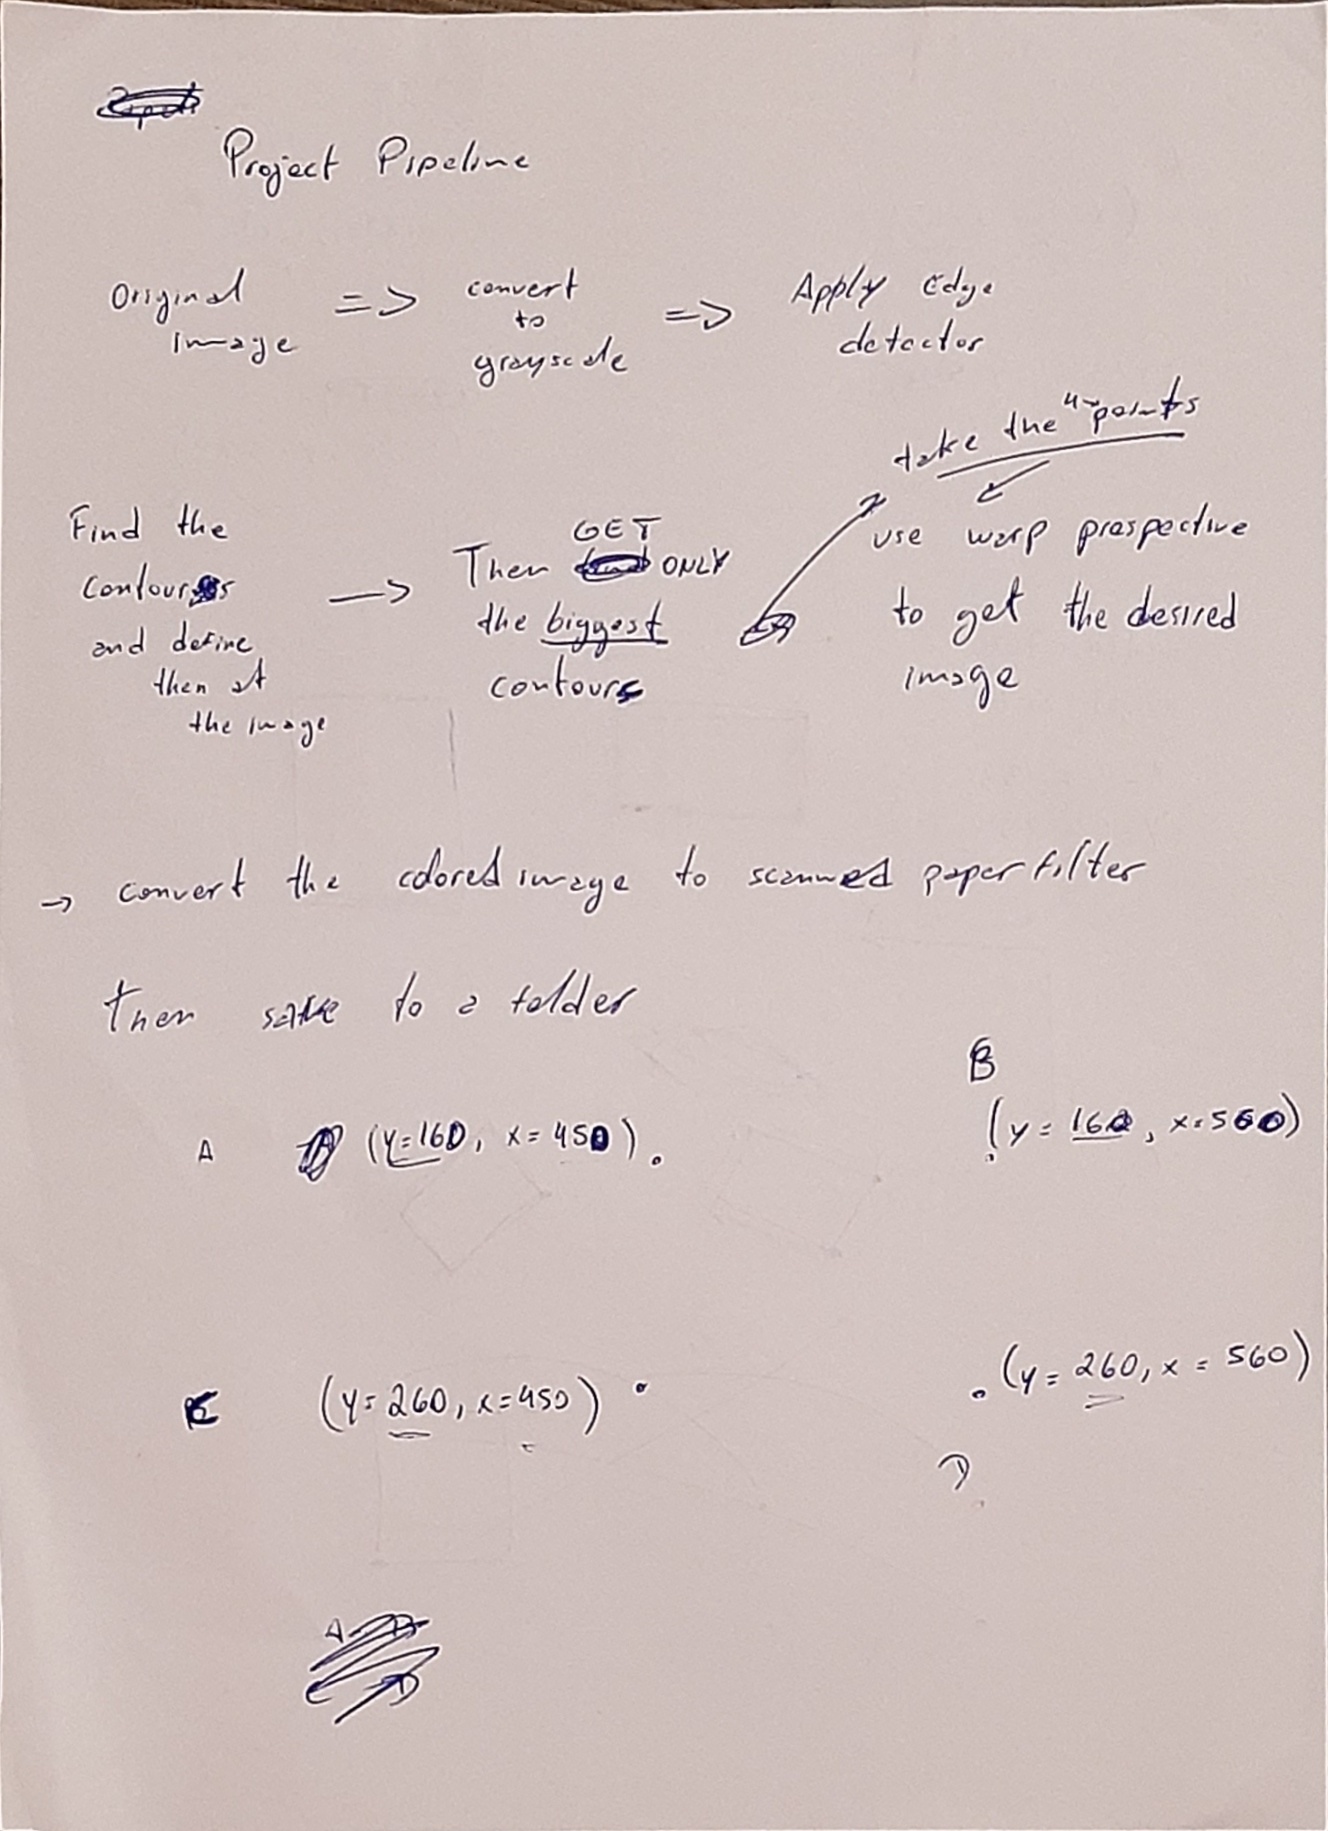 Project Pipeline
Original image => convert to grayscale => Apply Edge detector
take the 4 points
Find the contours and define then at the image -> Then GET ONLY the biggest contours
use warp prespective to get the desired image
-> convert the colored image to scanned paper filter
then save to a folder
B
A (y=160, x=450).
(y=160, x=560)
C (y=260, x=450)
(y=260, x=560)
D